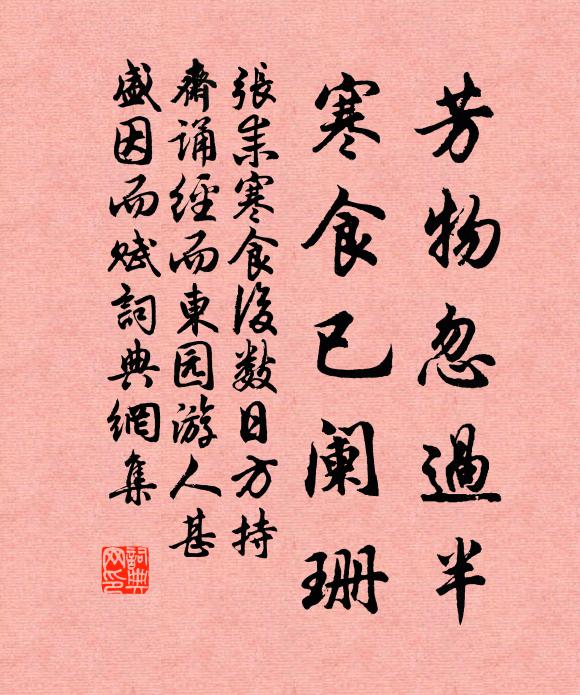 芳物忽過半
寒食已阑珊
張耒寒食後数日方持
齋誦經而東园游人甚
盛因而赋詞典網集
詞典网印